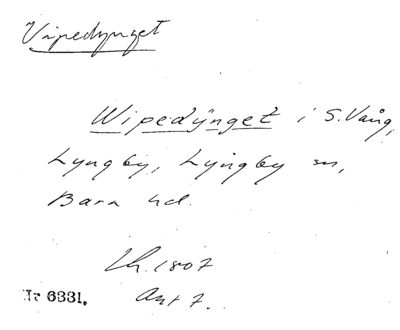 Vipedynget
Wipedÿnget i S. Vång,
Lyngby, Lyngby sn,
Bara hd.
Lh. 1807
Akt 7.
Nr 6331.